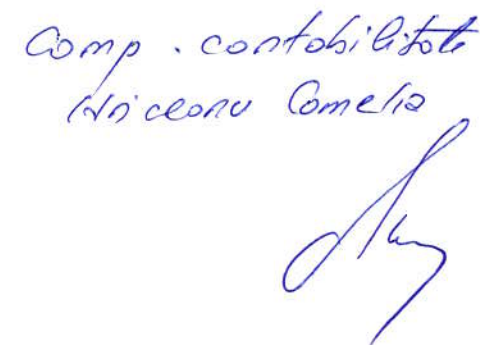 Comp. contabilitate
Hriceanu Camelia